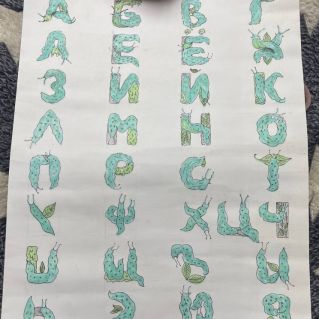 А Б В Г
Д Е Ё Ж
З И Й К
Л М Н О
П Р С Т
У Ф Х Ц Ч
Ш Щ Ъ Ы